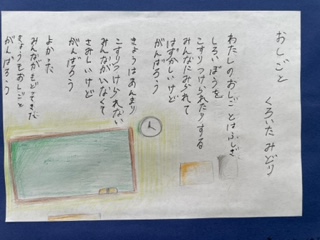 おしごと
くろいた みどり
わたしのおしごとはふしぎ
しろいぼうを
こすりつけられたりする
みんなにみられて
はずかしいけど
がんばろう
きょうはあんまり
こすりつけられない
みんながいなくて
さみしいけど
がんばろう
よかった
みんながもどってきた
きょうもおしごと
がんばろう